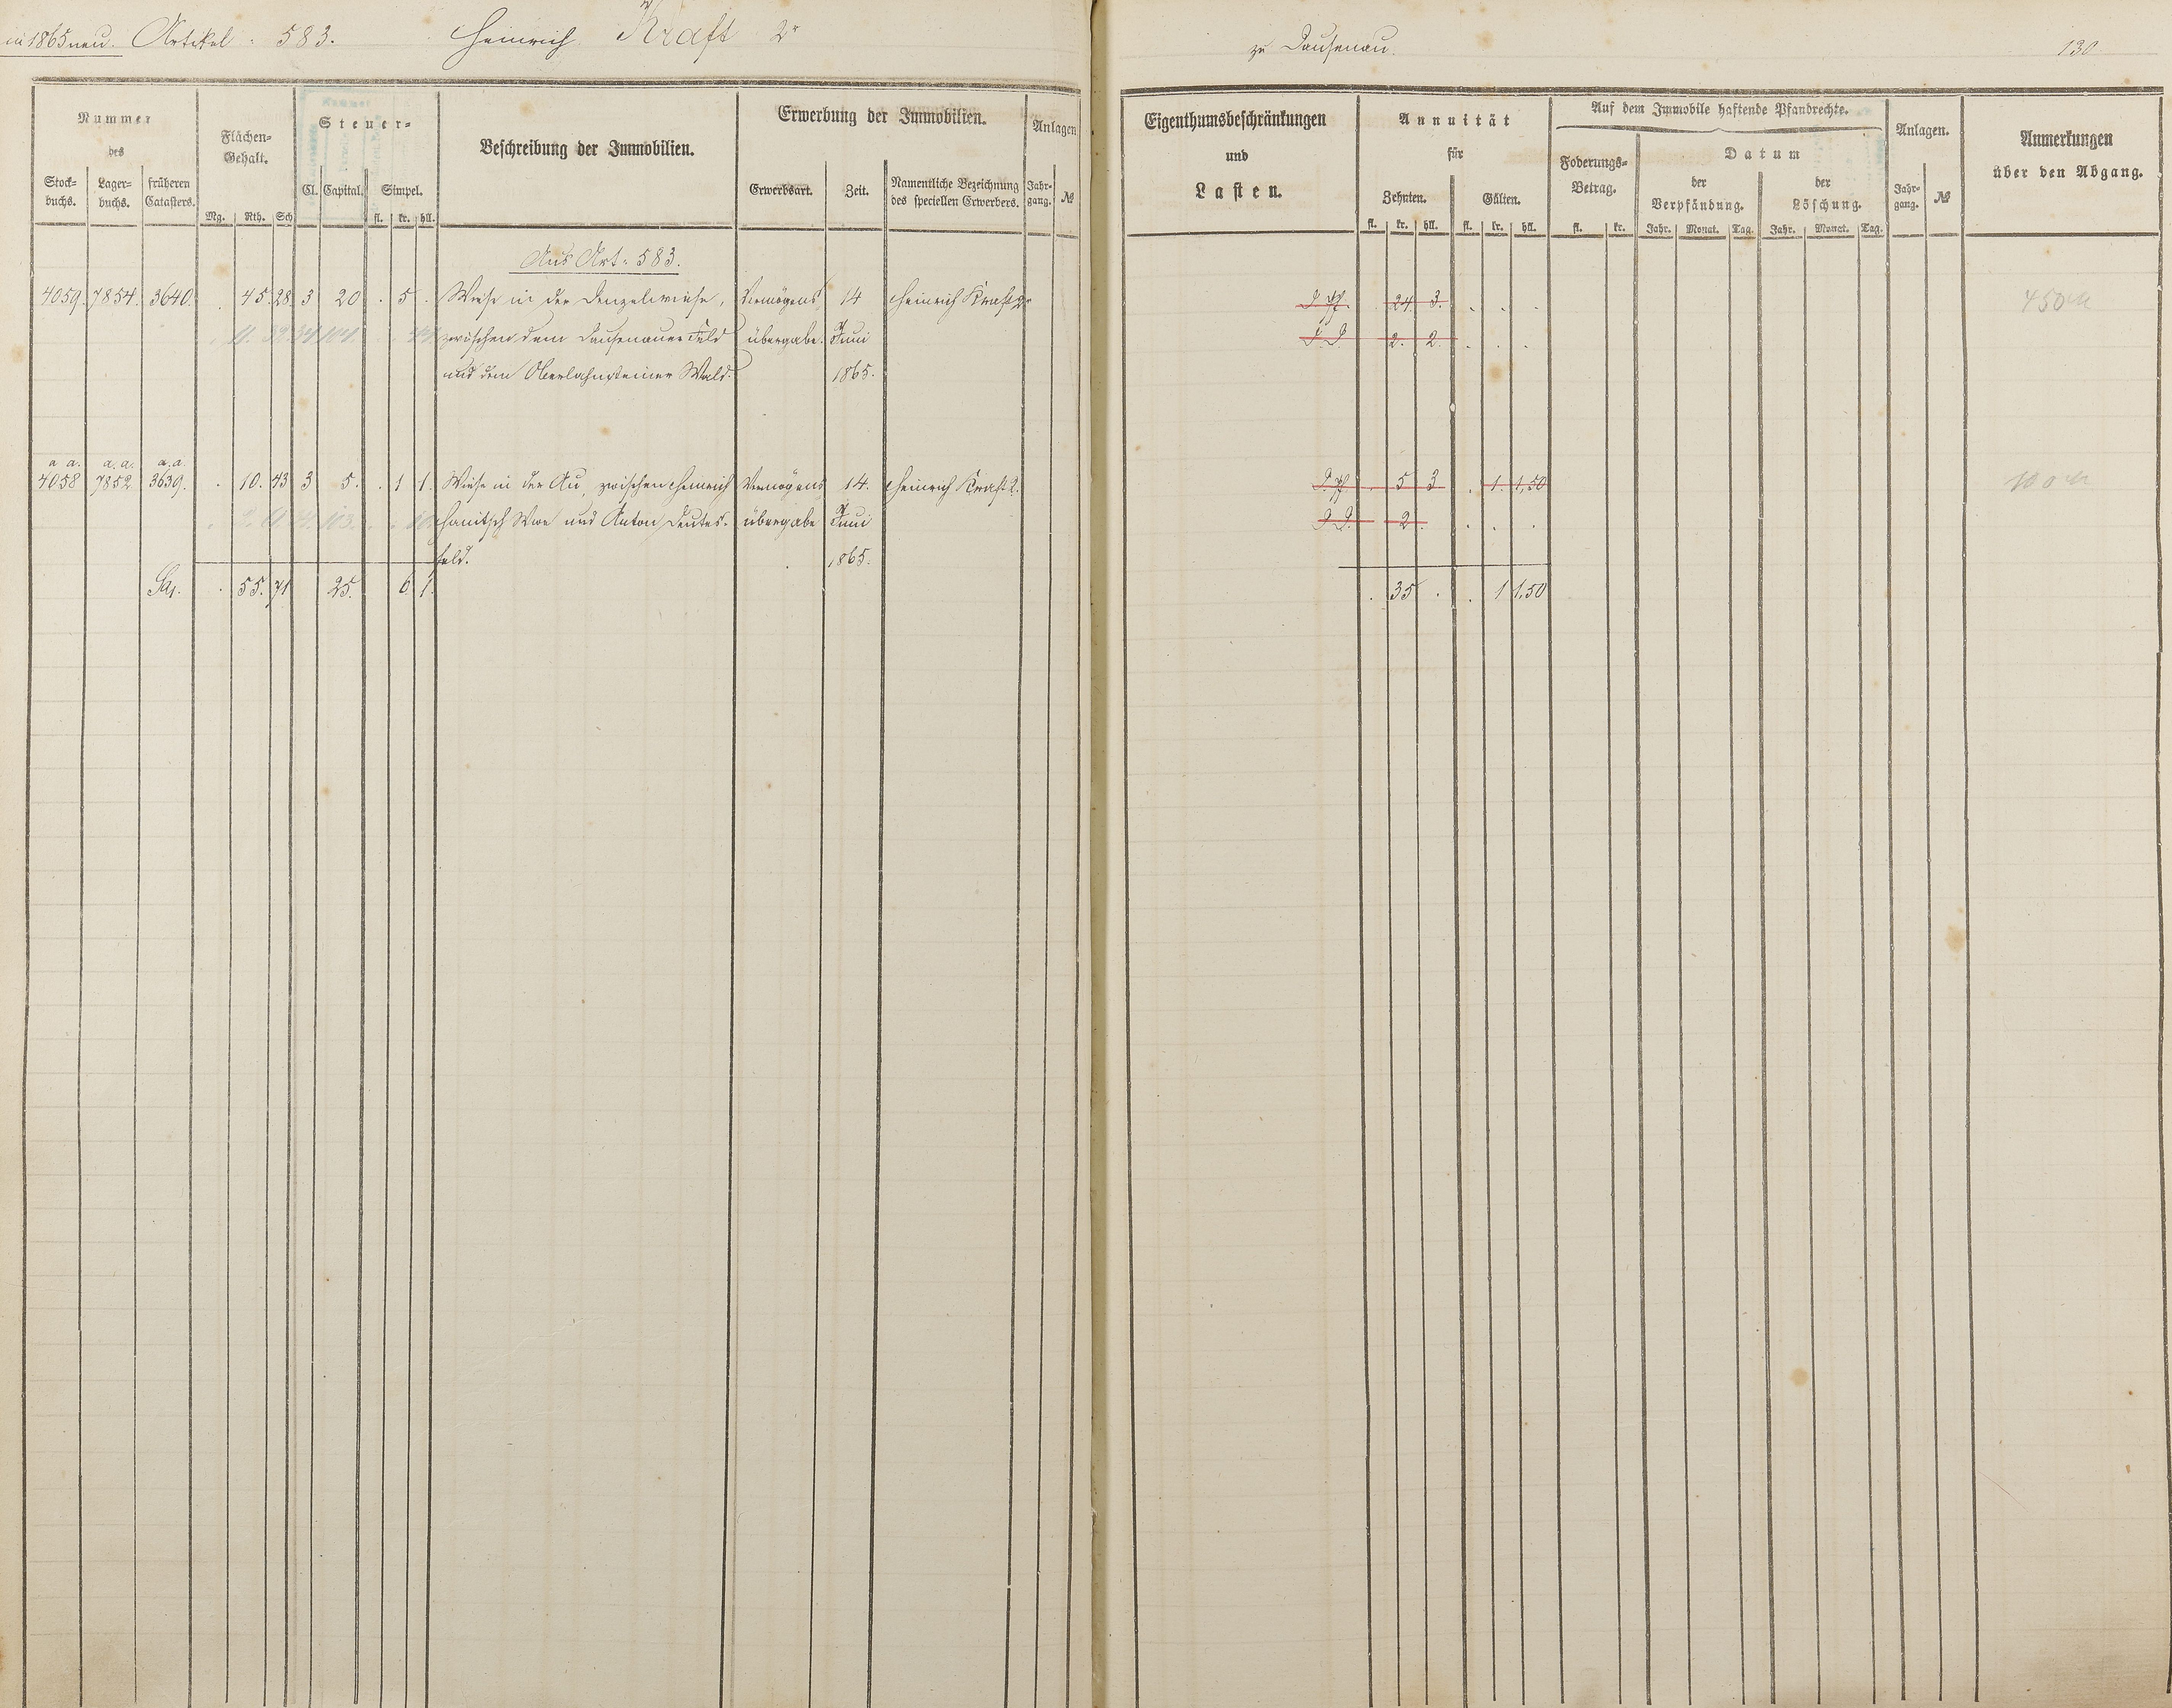 in 1865 neu. Artikel 583. Heinrich Kraft 2r
zu Dausenau. 130
Nummer des
Stock-buchs. Lager-buchs. früheren Catasters.
Flächen-Gehalt.
Mg. Rth. Sch
Steuer-
Cl. Capital. Simpel.
fl. kr. hll.
Beschreibung der Immobilien.
Erwerbung der Immobilien.
Erwerbsart. Zeit. Namentliche Bezeichnung des speciellen Erwerbers.
Anlagen
Jahr-gang. №
Eigenthumsbeschränkungen
und
Lasten.
Annuität
für
Zehnten. Gülten.
fl. kr. hll. fl. kr. hll.
Auf dem Immobile haftende Pfandrechte.
Foderungs-Betrag.
fl. kr.
Datum
der Verpfändung. der Löschung.
Jahr. Monat. Tag. Jahr. Monat. Tag.
Anlagen.
Jahr-gang. №
Anmerkungen
über den Abgang.
Aus Art. 583.
4059. 7854. 3640. . 45. 28 3 20 . 5 . Wiese in der Denzelwiese, Vermögens 14 Heinrich Kraft 2r 24 3. . . . 450
zwischen dem Dausenauer Feld übergabe. Juni 2. 2. . . .
und dem Oberlahnsteiner Wald. 1865.
a a. a. a. a. a.
4058 7852 3639. . 10. 43 3 5. . 1 1. Wiese in der Au, zwischen Heinrich Vermögens 14. Heinrich Kraft 2. 5 3 . 1. 1,50 100
Hanitsch Wwe und Anton Deutes- übergabe Juni 2 . . .
feld. 1865.
Sa. . 55. 71 25. 6 1. . 35 . . 1 1,50